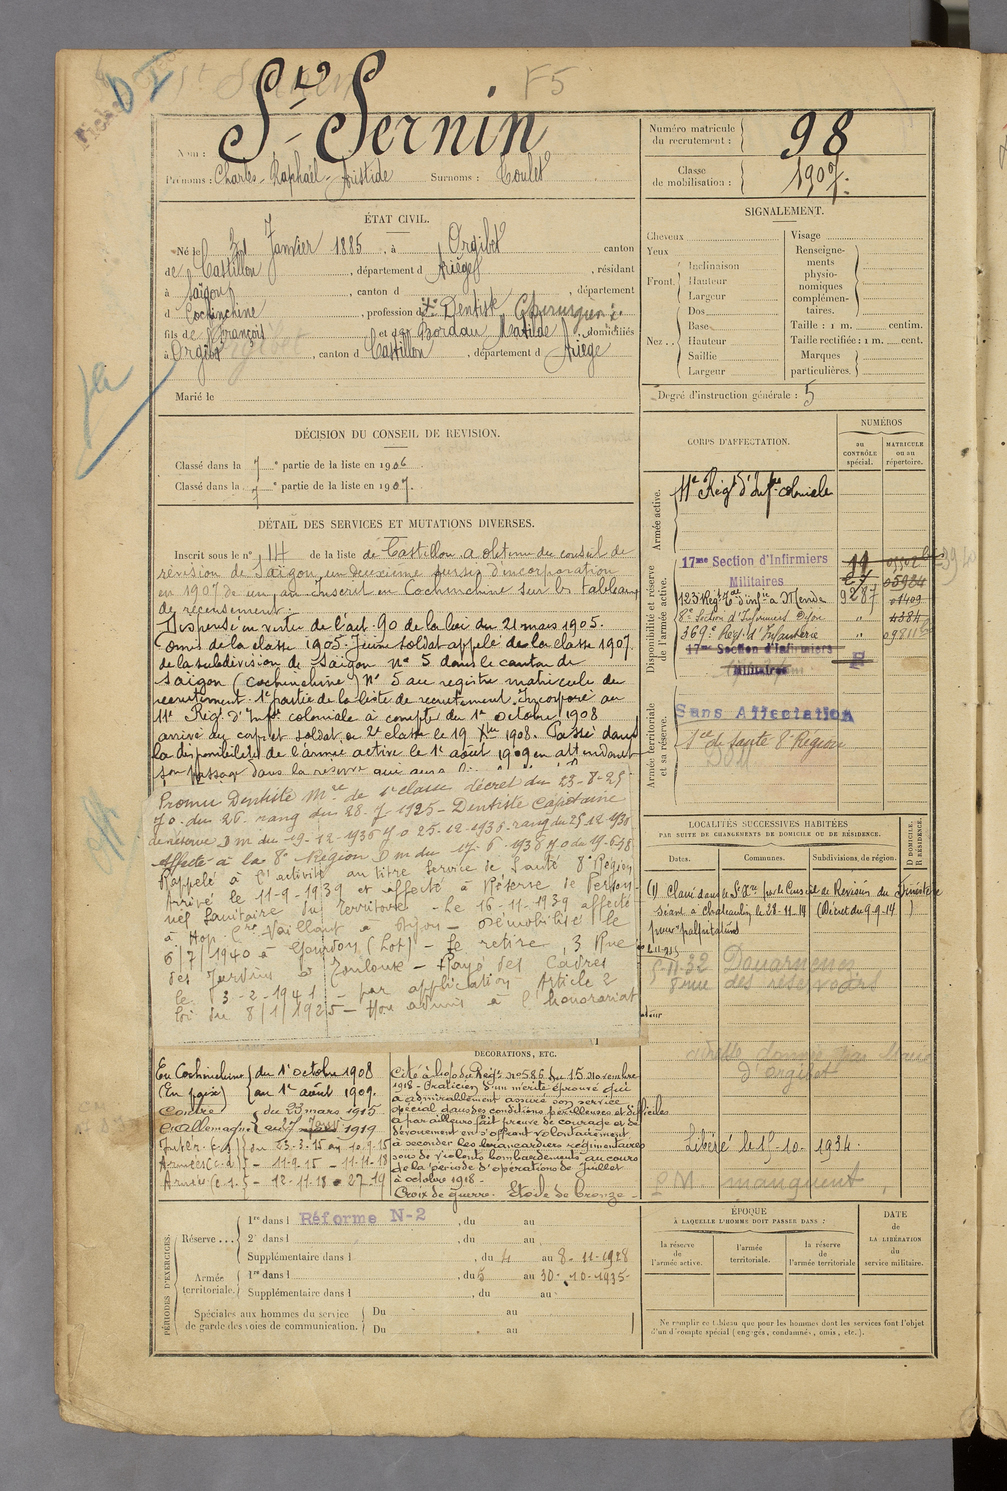 F5
St Sernin
Nom :
Prénoms : Charles - Raphaël - Aristide Surnoms : Toulet
Numéro matricule du recrutement : 98
Classe de mobilisation : 1907.
ÉTAT CIVIL.
Né le Janvier 1885, à Orgibet canton
de Castillon, département d Ariège, résidant
à Saïgon, canton d , département
d Cochinchine, profession d Dentiste Chirurgien
fils de François et de Bordau Matilde, domiciliés
à Orgibet, canton d Castillon, département d Ariège
Marié le
SIGNALEMENT.
Cheveux
Yeux
Front. Inclinaison
Hauteur
Largeur
Nez. Dos
Base
Hauteur
Saillie
Largeur
Visage
Renseigne-
ments
physio-
nomiques
complémen-
taires.
Taille : 1 m. centim.
Taille rectifiée : 1 m. cent.
Marques
particulières.
Degré d'instruction générale : 5
DÉCISION DU CONSEIL DE REVISION.
Classé dans la 7e partie de la liste en 1906.
Classé dans la 7e partie de la liste en 1907.
DÉTAIL DES SERVICES ET MUTATIONS DIVERSES.
Inscrit sous le n° 14 de la liste de Castillon a obtenu du conseil de
révision de Saïgon, un deuxième sursis d'incorporation
en 1907 de un an inscrit en Cochinchine sur les tableaux
de recensement.
Dispensé en vertu de l'art. 90 de la loi du 21 mars 1905.
Omis de la classe 1905. Jeune soldat appelé de la classe 1907
de la subdivision de Saïgon n° 5 dans le canton de
Saïgon (Cochinchine) N° 5 au registre matricule du
recrutement. 1e partie de la liste de recrutement. Incorporé au
11e Régt d'Infie coloniale à compter du 1er octobre 1908
arrivé au corps et soldat de 2e classe le 19 Xbre 1908. Passé dans
la disponibilité de l'armée active le 1er août 1909 en attendant
son passage dans la réserve qui aura
Promu Dentiste Mre de 1e classe décret du 23-8-25
J.O. du 26. rang du 28.7.1925 - Dentiste Capitaine
de réserve D m du 19-12-1936 J O 25-12-1936 rang du 25.12.1936
Affecté à la 8e Région D m du 17-6-1938 J O du 19-6-38
Rappelé à l'activité au titre Service de Santé 8e Région
Arrivé le 11-9-1939 et affecté à Réserve de Person-
nel Sanitaire du Territoire - Le 16-11-1939 affecté
à Hop. Cre Vaillant à Dijon - Démobilisé le
6/7/1940 à Gourdon (Lot) - Se retire, 3 Rue
des Jardins à Toulouse - Rayé des Cadres
le 3-2-1941 - par application Article 2
loi du 8/1/1925 - Non admis à l'honorariat
CORPS D'AFFECTATION.
NUMÉROS
au CONTRÔLE spécial.
MATRICULE ou au répertoire.
Armée active.
11e Régt d'Infie coloniale
Disponibilité et réserve de l'armée active.
17me Section d'Infirmiers
Militaires
123 Régt Tal d'infie à Mende 9287 01409
8e Section d'Infirmiers Dijon " 4384
369e Régt d'Infanterie " 09811
17me Section d'Infirmiers
Militaires
Armée territoriale et sa réserve.
Sans Affectation
Sce de santé 8e Région
LOCALITÉS SUCCESSIVES HABITÉES
PAR SUITE DE CHANGEMENTS DE DOMICILE OU DE RÉSIDENCE.
D DOMICILE, R RÉSIDENCE.
Dates. Communes. Subdivisions, de région.
(1) Classé dans le Sce Are par le Conseil de Révision du Finistère
séant à Chateaulin le 28-11-14 (Décret du 9-9-14)
pour palpitations
5-11-32 Douarnenez
8 rue des réservoirs
adresse donnée par Maire
d'Orgibet
Libéré le 15-10-1934.
P.M. manquent
En Cochinchine du 1er octobre 1908
(En paix) au 1er août 1909.
Contre du 23 mars 1915
l'Allemagne au 1919
Intér. (c.s) du 23-3-15 au 10-9-15
Armées (c.d) - 11-9-15 - 11-11-18
Armée (c.1.5 - 12-11-18 - 2-7-19
DÉCORATIONS, ETC.
Cité à l'o/o du Régt n° 586 du 15 Novembre
1918 - Praticien d'un mérite éprouvé qui
a admirablement assuré son service
spécial dans des conditions périlleuses et difficiles
a par ailleurs fait preuve de courage et de
dévouement en s'offrant volontairement
à seconder les brancardiers régimentaires
sous de violents bombardements au cours
de la période d'opérations de Juillet
à octobre 1918 -
Croix de guerre. Etoile de bronze
PÉRIODES D'EXERCICES.
Réserve... 1re dans l Réforme N-2, du au
2e dans l , du au
Supplémentaire dans l , du 4 au 8-11-1928
Armée territoriale. 1re dans l , du 5 au 30-10-1935-
Supplémentaire dans l , du au
Spéciales aux hommes du service de garde des voies de communication. Du au
Du au
ÉPOQUE
À LAQUELLE L'HOMME DOIT PASSER DANS :
la réserve de l'armée active.
l'armée territoriale.
la réserve de l'armée territoriale
DATE de LA LIBÉRATION du service militaire.
Ne remplir ce tableau que pour les hommes dont les services font l'objet
d'un décompte spécial (engagés, condamnés, omis, etc.).